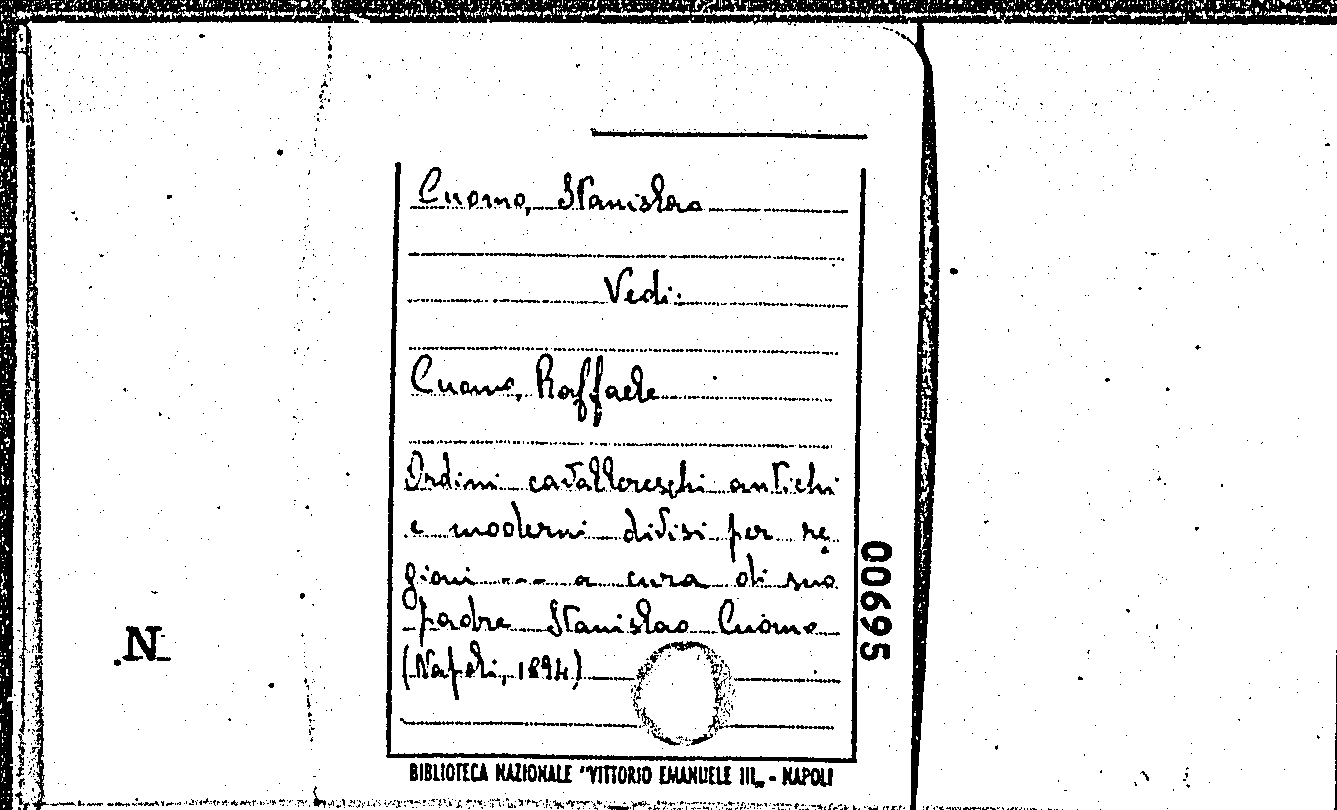 Cuomo, Stanislao
Vedi:
Cuomo, Raffaele
Ordini cavallereschi antichi
e moderni divisi per re
gioni --- a cura di suo
padre Stanislao Cuomo
(Napoli, 1894)
00695
.N.
BIBLIOTECA NAZIONALE "VITTORIO EMANUELE III„ - NAPOLI